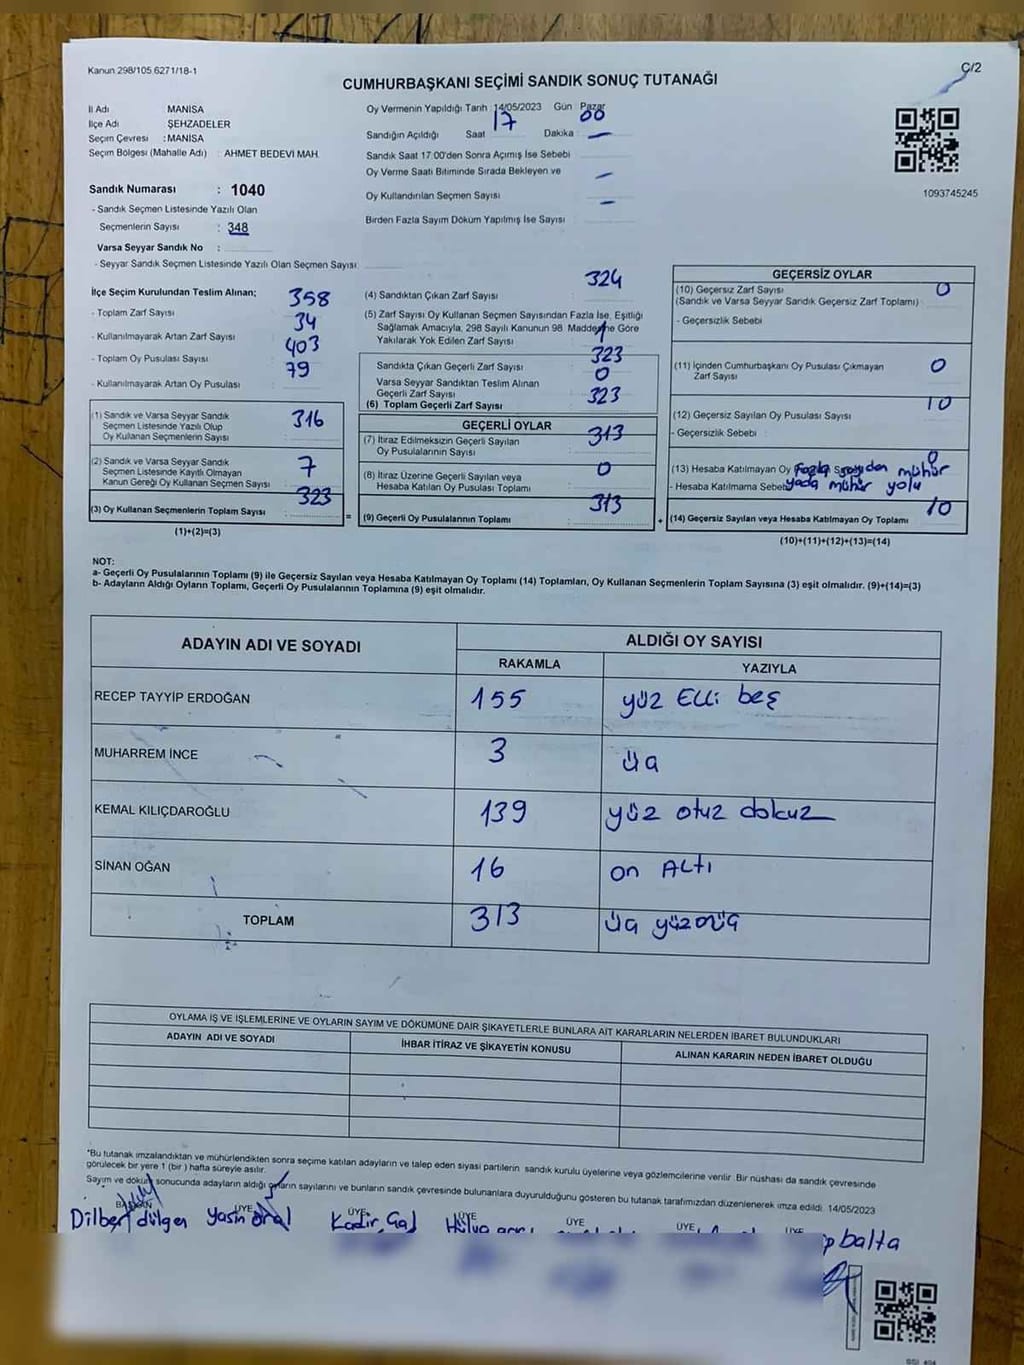 Kanun 298/105 6271/18-1
Ç/2
CUMHURBAŞKANI SEÇİMİ SANDIK SONUÇ TUTANAĞI
İl Adı MANİSA
İlçe Adı ŞEHZADELER
Seçim Çevresi : MANİSA
Seçim Bölgesi (Mahalle Adı) : AHMET BEDEVİ MAH.
Sandık Numarası : 1040
- Sandık Seçmen Listesinde Yazılı Olan
Seçmenlerin Sayısı : 348
Varsa Seyyar Sandık No :
- Seyyar Sandık Seçmen Listesinde Yazılı Olan Seçmen Sayısı:
Oy Vermenin Yapıldığı Tarih 14/05/2023 Gün Pazar
Sandığın Açıldığı Saat 17 Dakika 00
Sandık Saat 17.00'den Sonra Açımış İse Sebebi —
Oy Verme Saati Bitiminde Sırada Bekleyen ve
Oy Kullandırılan Seçmen Sayısı —
Birden Fazla Sayım Döküm Yapılmış İse Sayısı —
1093745245
İlçe Seçim Kurulundan Teslim Alınan;
- Toplam Zarf Sayısı 358
- Kullanılmayarak Artan Zarf Sayısı 34
- Toplam Oy Pusulası Sayısı 403
- Kullanılmayarak Artan Oy Pusulası 79
(1) Sandık ve Varsa Seyyar Sandık
Seçmen Listesinde Yazılı Olup
Oy Kullanan Seçmenlerin Sayısı 316
(2) Sandık ve Varsa Seyyar Sandık
Seçmen Listesinde Kayıtlı Olmayan
Kanun Gereği Oy Kullanan Seçmen Sayısı 7
(3) Oy Kullanan Seçmenlerin Toplam Sayısı 323
(1)+(2)=(3)
(4) Sandıktan Çıkan Zarf Sayısı 324
(5) Zarf Sayısı Oy Kullanan Seçmen Sayısından Fazla İse, Eşitliği
Sağlamak Amacıyla, 298 Sayılı Kanunun 98. Maddesine Göre
Yakılarak Yok Edilen Zarf Sayısı 1
Sandıkta Çıkan Geçerli Zarf Sayısı 323
Varsa Seyyar Sandıktan Teslim Alınan
Geçerli Zarf Sayısı 0
(6) Toplam Geçerli Zarf Sayısı 323
GEÇERLİ OYLAR
(7) İtiraz Edilmeksizin Geçerli Sayılan
Oy Pusulasının Sayısı 313
(8) İtiraz Üzerine Geçerli Sayılan veya
Hesaba Katılan Oy Pusulası Toplamı 0
= (9) Geçerli Oy Pusulalarının Toplamı 313
GEÇERSİZ OYLAR
(10) Geçersiz Zarf Sayısı 0
(Sandık ve Varsa Seyyar Sandık Geçersiz Zarf Toplamı)
- Geçersizlik Sebebi
(11) İçinden Cumhurbaşkanı Oy Pusulası Çıkmayan
Zarf Sayısı 0
(12) Geçersiz Sayılan Oy Pusulası Sayısı 10
- Geçersizlik Sebebi :
(13) Hesaba Katılmayan Oy 0
- Hesaba Katılmama Sebebi
mühür
yada mühür yolu
+ (14) Geçersiz Sayılan veya Hesaba Katılmayan Oy Toplamı 10
(10)+(11)+(12)+(13)=(14)
NOT:
a- Geçerli Oy Pusulalarının Toplamı (9) ile Geçersiz Sayılan veya Hesaba Katılmayan Oy Toplamı (14) Toplamları, Oy Kullanan Seçmenlerin Toplam Sayısına (3) eşit olmalıdır. (9)+(14)=(3)
b- Adayların Aldığı Oyların Toplamı, Geçerli Oy Pusulalarının Toplamına (9) eşit olmalıdır.
ADAYIN ADI VE SOYADI ALDIĞI OY SAYISI
RAKAMLA YAZIYLA
RECEP TAYYİP ERDOĞAN 155 yüz Elli beş
MUHARREM İNCE 3 üç
KEMAL KILIÇDAROĞLU 139 yüz otuz dokuz
SİNAN OĞAN 16 on Altı
TOPLAM 313 üç yüzonüç
OYLAMA İŞ VE İŞLEMLERİNE VE OYLARIN SAYIM VE DÖKÜMÜNE DAİR ŞİKAYETLERLE BUNLARA AİT KARARLARIN NELERDEN İBARET BULUNDUKLARI
ADAYIN ADI VE SOYADI İHBAR İTİRAZ VE ŞİKAYETİN KONUSU ALINAN KARARIN NEDEN İBARET OLDUĞU
*Bu tutanak imzalandıktan ve mühürlendikten sonra seçime katılan adayların ve talep eden siyasi partilerin sandık kurulu üyelerine veya gözlemcilerine verilir. Bir nüshası da sandık çevresinde
görülecek bir yere 1 (bir) hafta süreyle asılır.
Sayım ve döküm sonucunda adayların aldığı oyların sayılarını ve bunların sandık çevresinde bulunanlara duyurulduğunu gösteren bu tutanak tarafımızdan düzenlenerek imza edildi. 14/05/2023
BAŞKAN ÜYE ÜYE ÜYE ÜYE ÜYE ÜYE
Dilber dülger Yasin Kadir balta